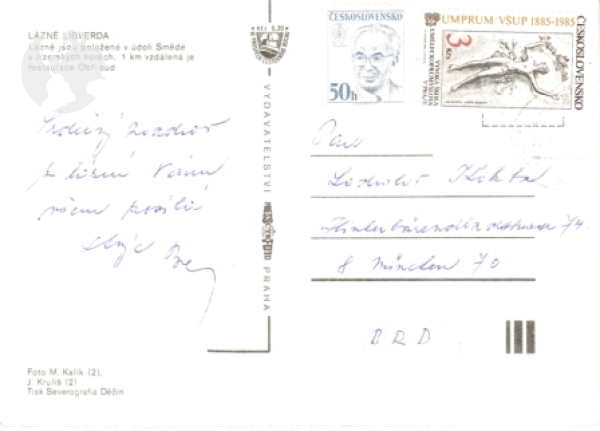 LÁZNĚ LIBVERDA
Lázně jsou položené v údolí Smědé
v Jizerských horách. 1 km vzdálená je
restaurace Obří sud
Srdečný pozdrav
z lázní Vám
všem posílá
strýc
Foto M. Kalík (2),
J. Kruliš (2)
Tisk Severografia Děčín
VYDAVATELSTVÍ
PRAHA
ČESKOSLOVENSKO
50h
UMPRUM VŠUP 1885-1985
3
Kčs
VYSOKÁ ŠKOLA
UMĚLECKOPRŮMYSLOVÁ
V PRAZE
ČESKOSLOVENSKO
Pan
Ladislav
74
8 München 70
BRD